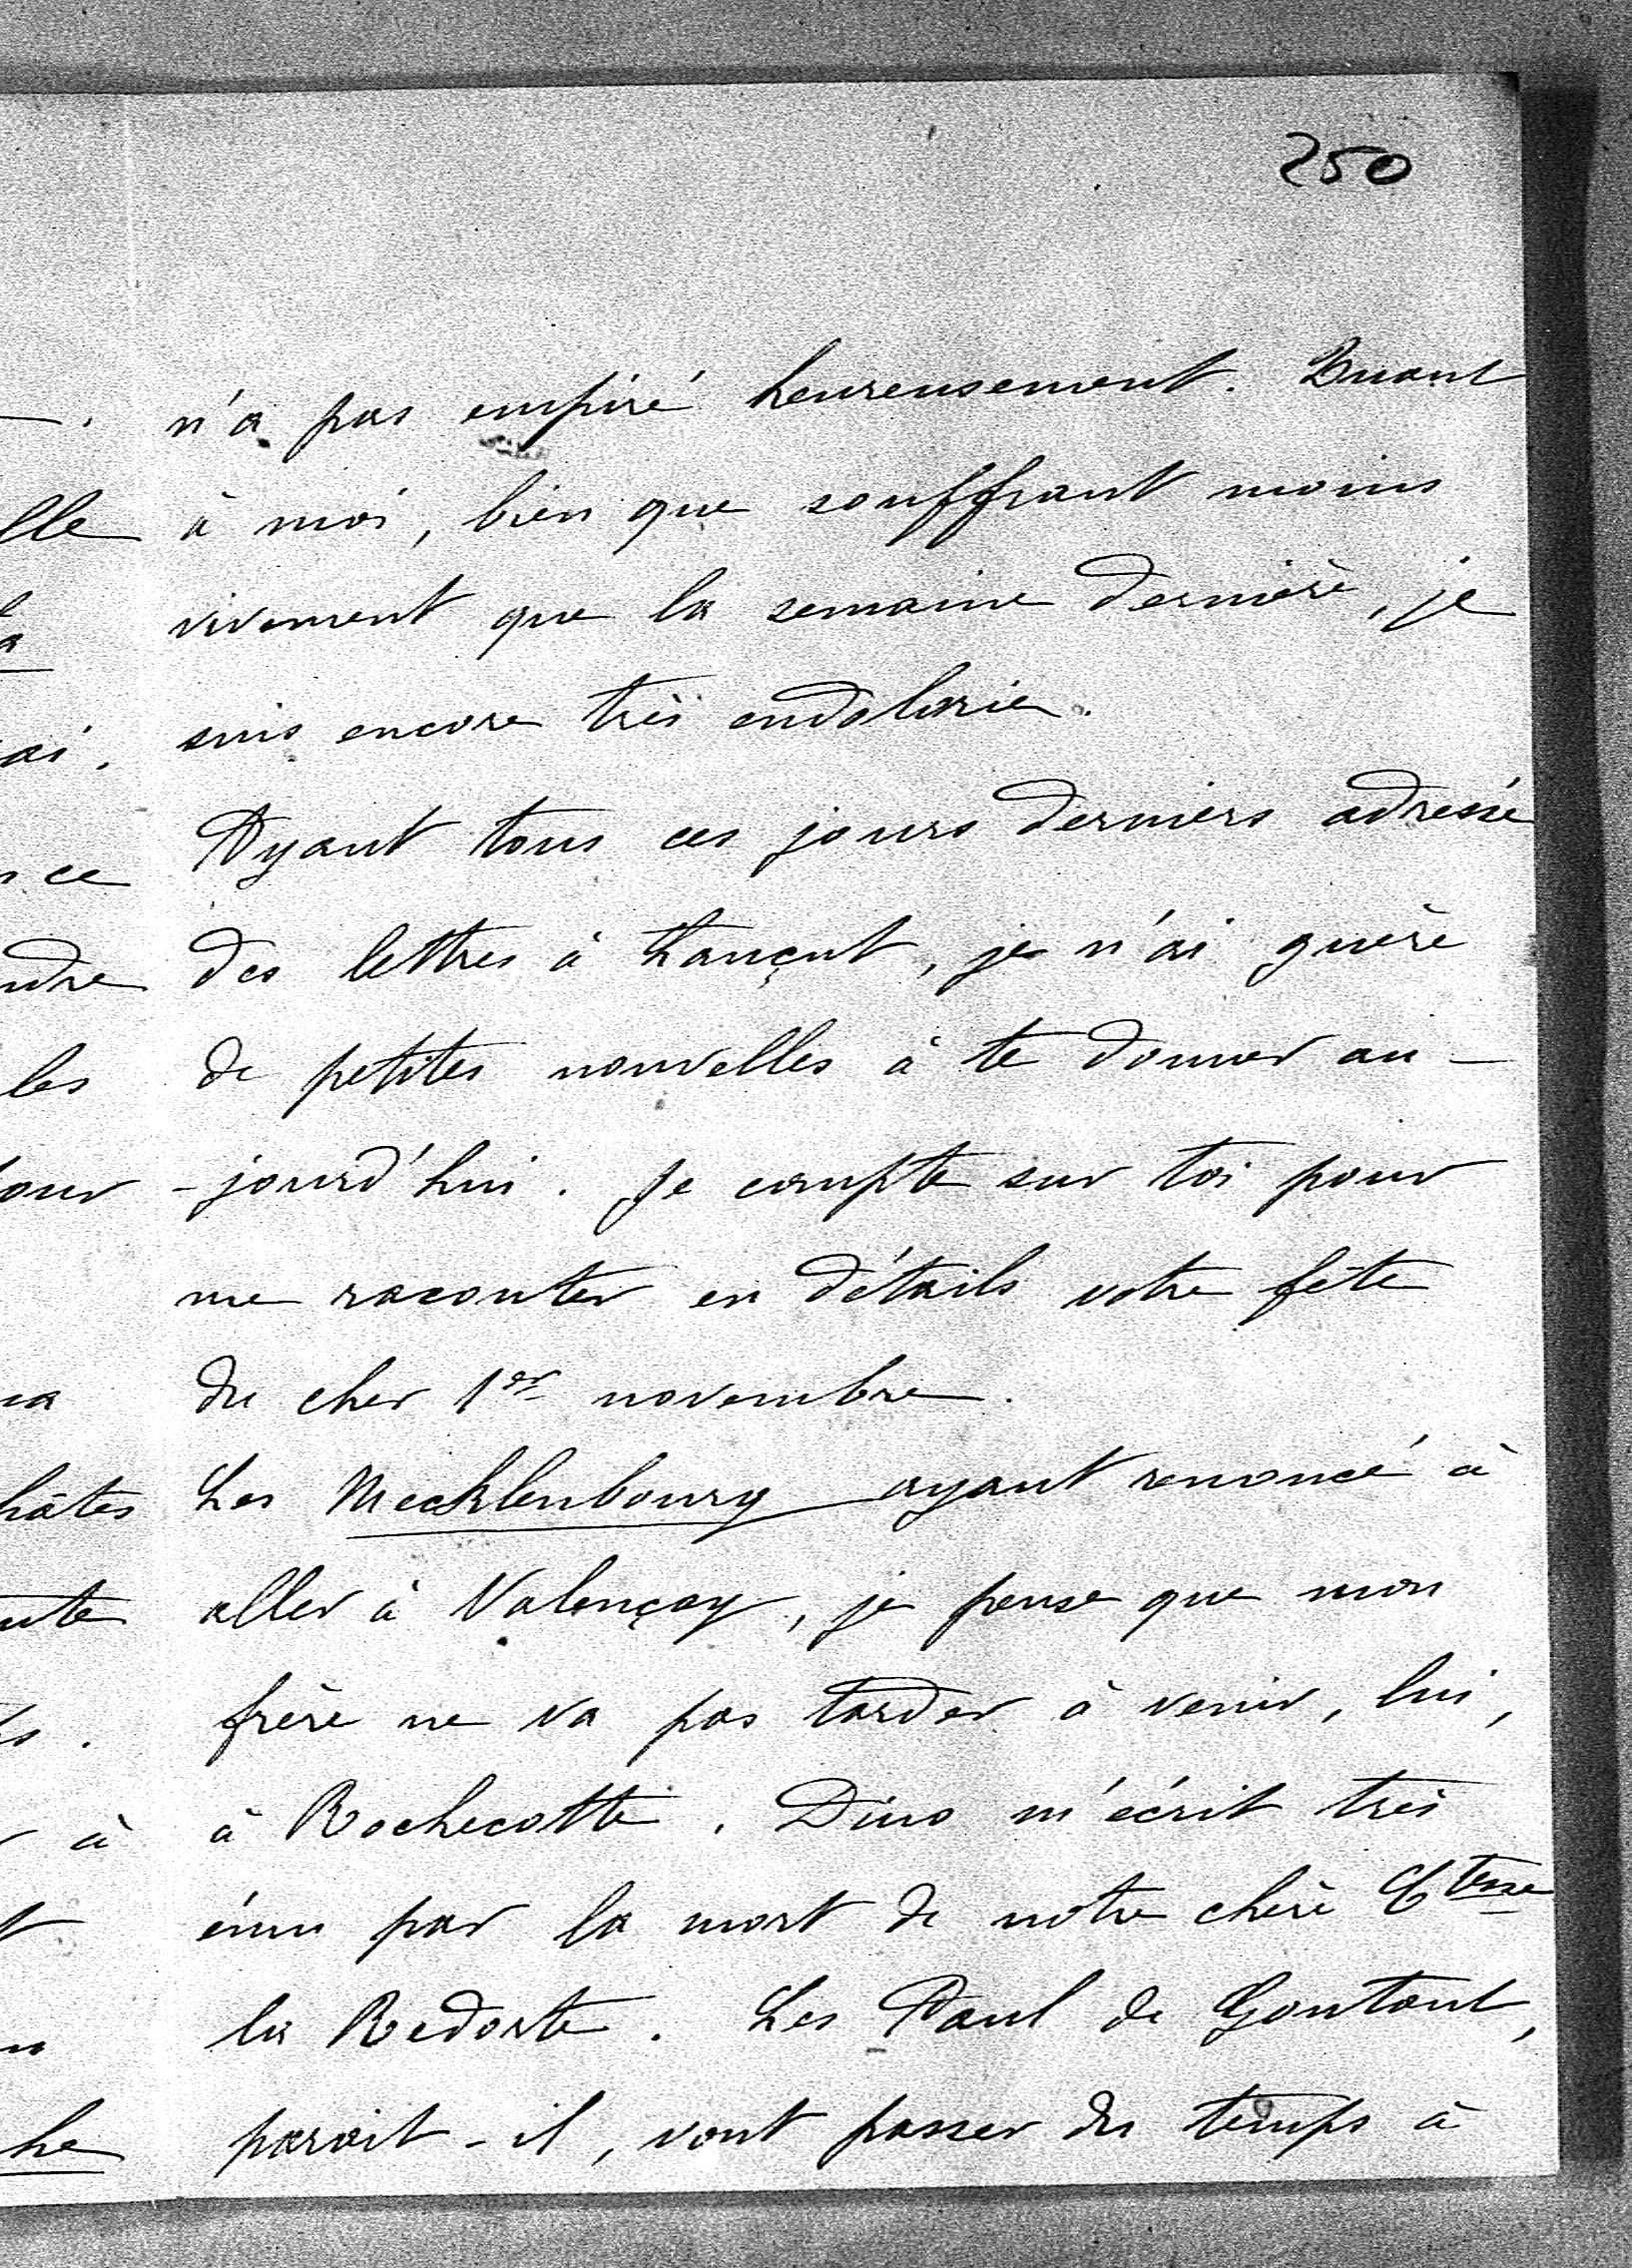 250
n'a pas empiré heureusement. Quant
à moi, bien que souffrant moins
vivement que la semaine dernière, je
suis encore très endolorie.
Ayant tous ces jours derniers adressé
des lettres à Lançut, je n'ai guère
de petites nouvelles à te donner au-
-jourd'hui. Je compte sur toi pour
me raconter en détails votre fête
du cher 1er novembre.
Les Mecklenbourg ayant renoncé à
aller à Valençay, je pense que mon
frère ne va pas tarder à venir, lui,
à Rochecotte. Dino m'écrit très
ému par la mort de notre chère Ctesse
la Redorte. Les Paul de Gontaut,
paroit-il, vont passer du temps à